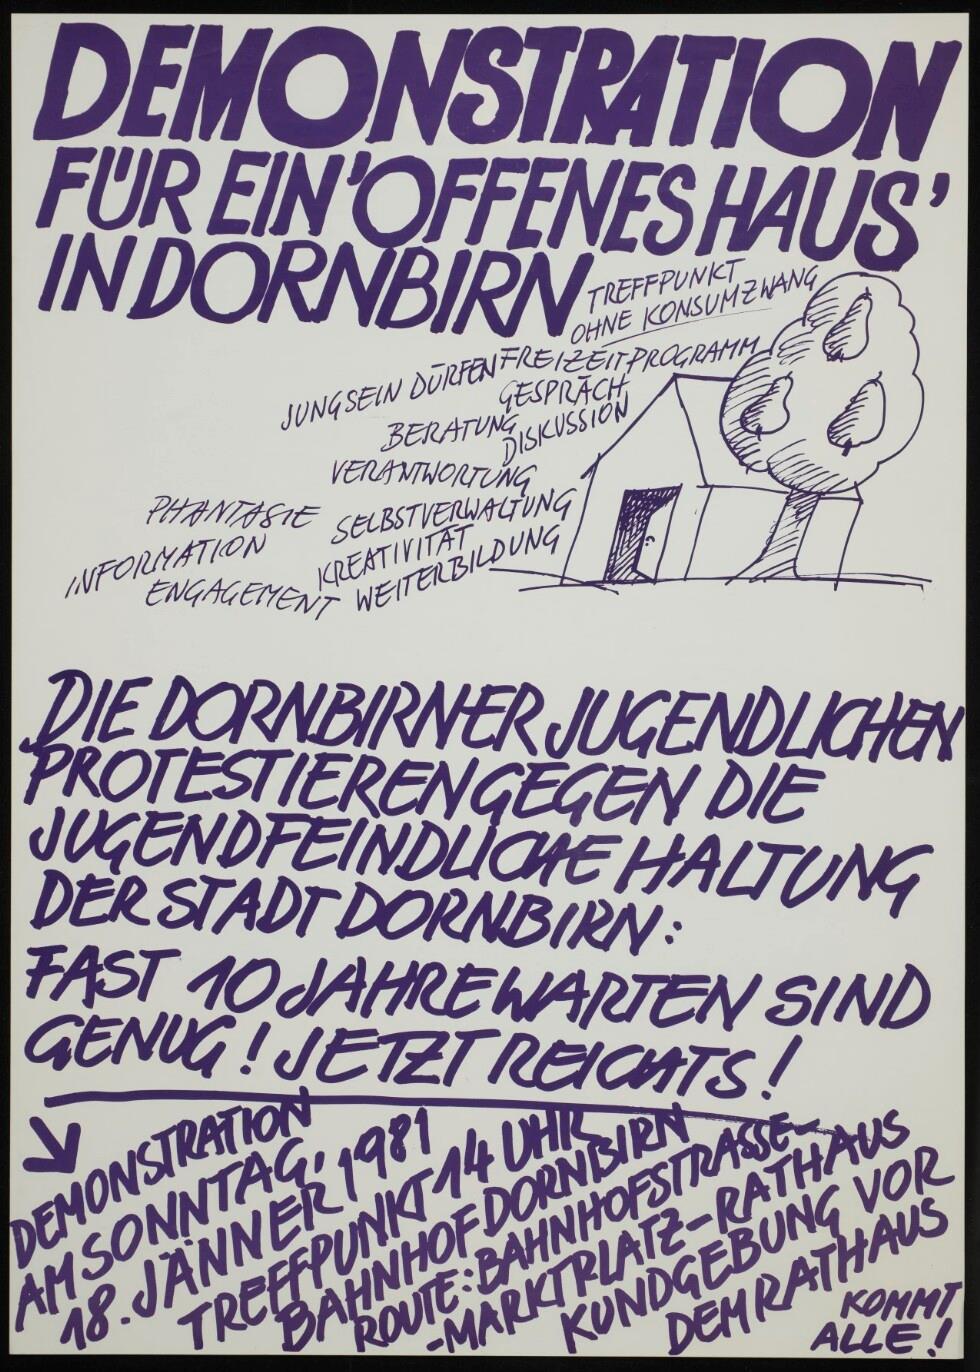 DEMONSTRATION
FÜR EIN 'OFFENES HAUS'
IN DORNBIRN
TREFFPUNKT
OHNE KONSUMZWANG
JUNGSEIN DÜRFEN FREIZEITPROGRAMM
GESPRÄCH
BERATUNG
DISKUSSION
VERANTWORTUNG
PHANTASIE
SELBSTVERWALTUNG
INFORMATION
KREATIVITÄT
ENGAGEMENT
WEITERBILDUNG
DIE DORNBIRNER JUGENDLICHEN
PROTESTIEREN GEGEN DIE
JUGENDFEINDLICHE HALTUNG
DER STADT DORNBIRN:
FAST 10 JAHRE WARTEN SIND
GENUG! JETZT REICHTS!
DEMONSTRATION
AM SONNTAG,
18. JÄNNER 1981
TREFFPUNKT 14 UHR
BAHNHOF DORNBIRN
ROUTE: BAHNHOFSTRASSE-
-MARKTPLATZ-RATHAUS
KUNDGEBUNG VOR
DEM RATHAUS
KOMMT
ALLE!